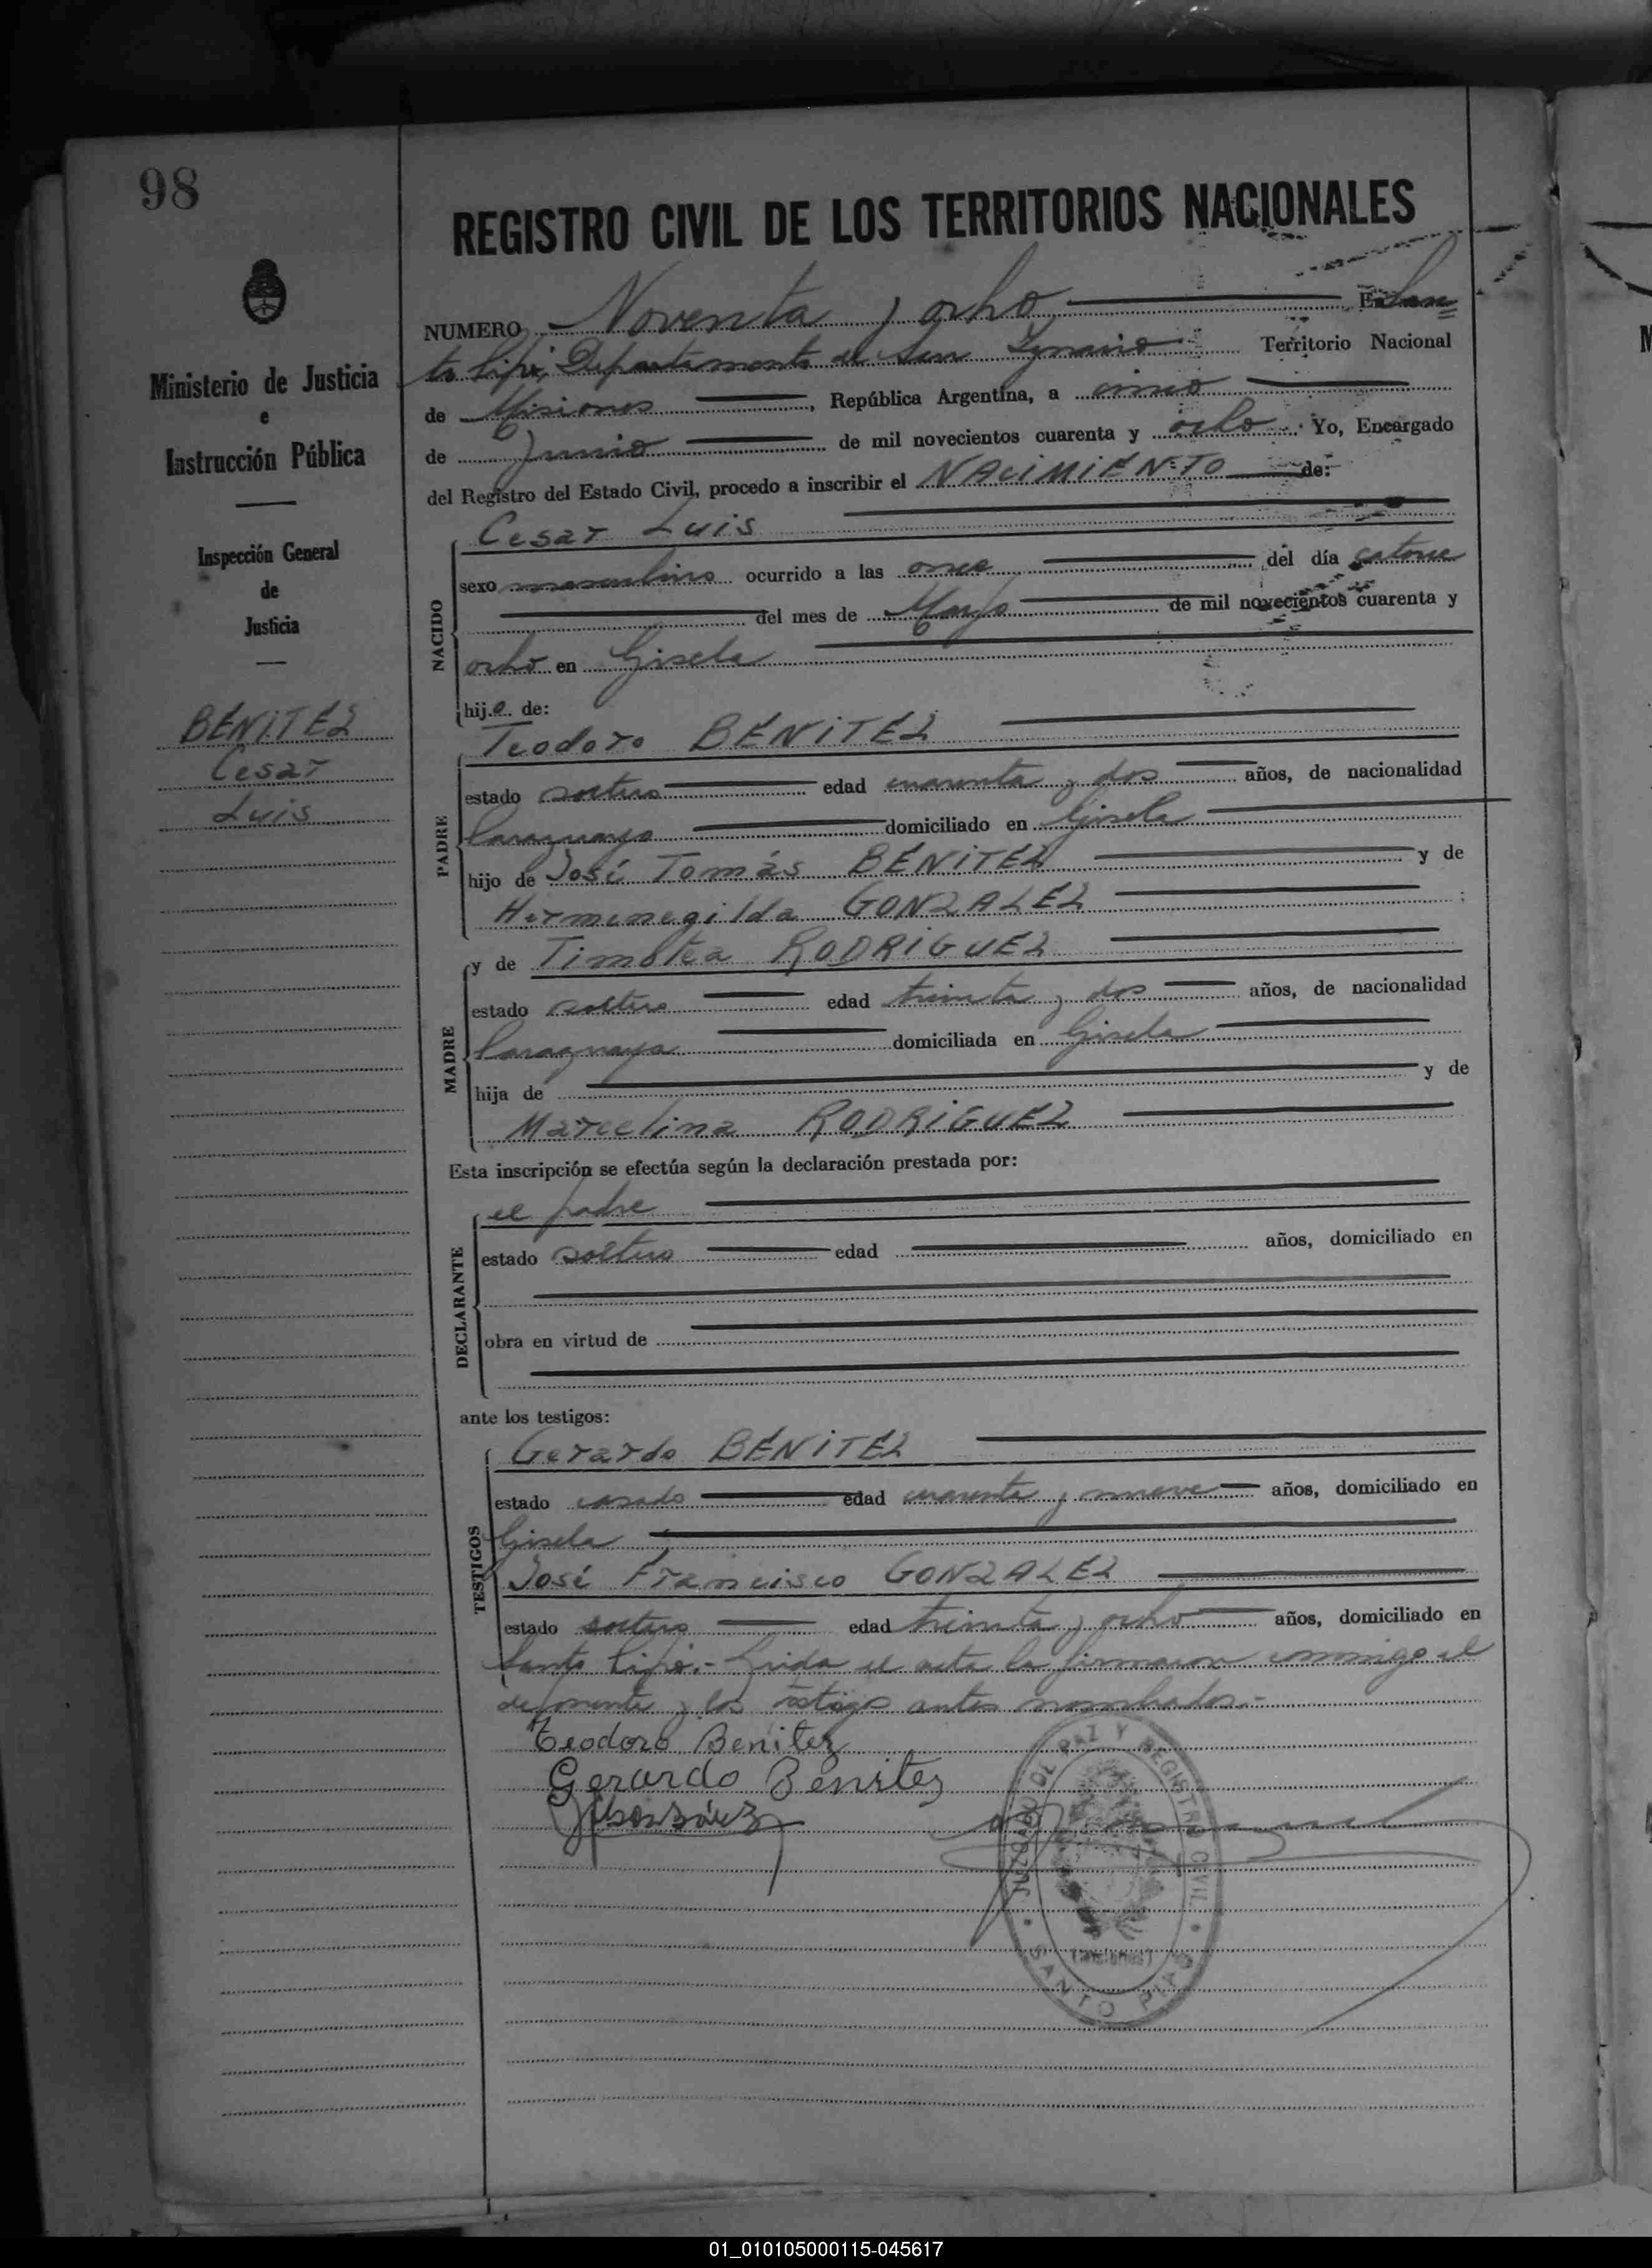 98
REGISTRO CIVIL DE LOS TERRITORIOS NACIONALES
NUMERO Noventa y ocho En San
to Pipó, Departamento de San Ignacio Territorio Nacional
de Misiones, República Argentina, a cinco
de Junio de mil novecientos cuarenta y ocho Yo, Encargado
del Registro del Estado Civil, procedo a inscribir el NACIMIENTO de:
Ministerio de Justicia
e
Instrucción Pública
Inspección General
de
Justicia
BENITEZ
Cesar
Luis
NACIDO
Cesar Luis
sexo masculino ocurrido a las once del día catorce
del mes de Mayo de mil novecientos cuarenta y
ocho en Gisela
hijo de:
PADRE
Teodoro BENITEZ
estado soltero edad cuarenta y dos años, de nacionalidad
Paraguaya domiciliado en Gisela
hijo de José Tomás BENITEZ y de
Hermenegilda GONZALEZ ;
MADRE
y de Timotea RODRIGUEZ
estado soltera edad treinta y dos años, de nacionalidad
Paraguaya domiciliada en Gisela
hija de y de
Marcelina RODRIGUEZ
Esta inscripción se efectúa según la declaración prestada por:
DECLARANTE
el padre
estado soltero edad años, domiciliado en
obra en virtud de
ante los testigos:
TESTIGOS
Gerardo BENITEZ
estado casado edad cuarenta y nueve años, domiciliado en
Gisela
José Francisco GONZALEZ
estado soltero edad treinta y ocho años, domiciliado en
Santo Pipó.- Leida el acta la firmaron conmigo el
deponente y los testigos antes nombrados.-
Teodoro Benitez
Gerardo Benitez
JUZGADO DE PAZ Y REGISTRO CIVIL
(Misiones)
SANTO PIPÓ
01_010105000115-045617